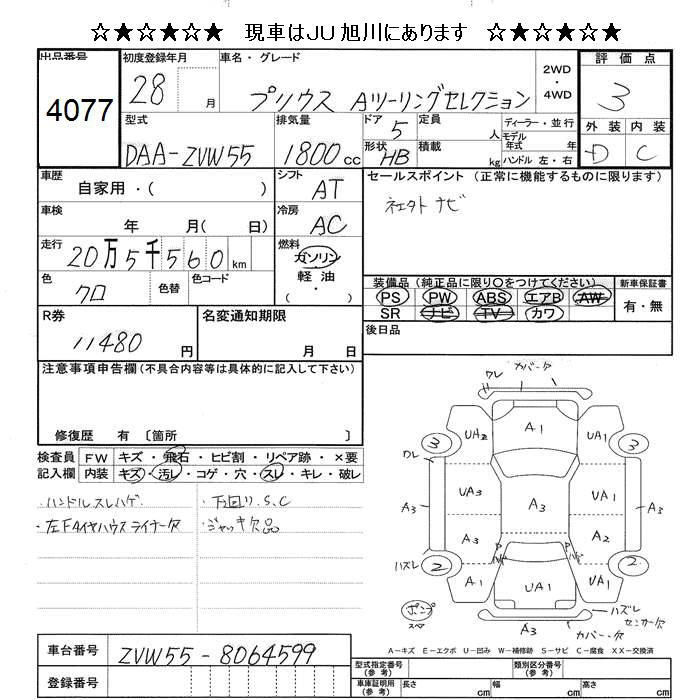 ☆★☆★☆★ 現車はJU旭川にあります ☆★☆★☆★
出品番号 4077
初度登録年月 28 月
車名・グレード プリウス Aツーリングセレクション
2WD・4WD
評価点 3
外装 D 内装 C
型式 DAA-ZVW55
排気量 1800cc
ドア 5 定員 人
形状 HB 積載 kg
ディーラー・並行
モデル年式 年
ハンドル 左・右
車歴 自家用・( )
シフト AT
車検 年 月( 日)
冷房 AC
走行 20万5千560km
燃料 ガソリン・軽油・( )
色 クロ 色替 色コード
セールスポイント (正常に機能するものに限ります)
ナビ
装備品(純正品に限り○をつけてください)
PS PW ABS エアB AW
SR ナビ TV カワ
新車保証書 有・無
後日品
R券 11480円
名変通知期限 月 日
注意事項申告欄(不具合内容等は具体的に記入して下さい)
修復歴 有 〔箇所 〕
検査員記入欄
FW キズ・飛石・ヒビ割・リペア跡・×要
内装 キズ・汚レ・コゲ・穴・スレ・キレ・破レ
・ハンドルスレハゲ ・下回リ.S.C
・左Fタイヤハウスライナー欠 ・ジャッキ欠品
ワレ カバー欠
UA2 A1 UA1
3 3
ワレ
A3 UA3 A3 UA1 A3
A3 A2
ハズレ 2 2
A1 UA1 UA1
ポンプ
スペア
A3
ハズレ
センサー欠
カバー欠
A-キズ E-エクボ U-凹み W-補修跡 S-サビ C-腐食 XX-交換済
車台番号 ZVW55-8064599
登録番号
型式指定番号(参考) 類別区分番号(参考)
車庫証明用(参考) 長さ cm 幅 cm 高さ cm